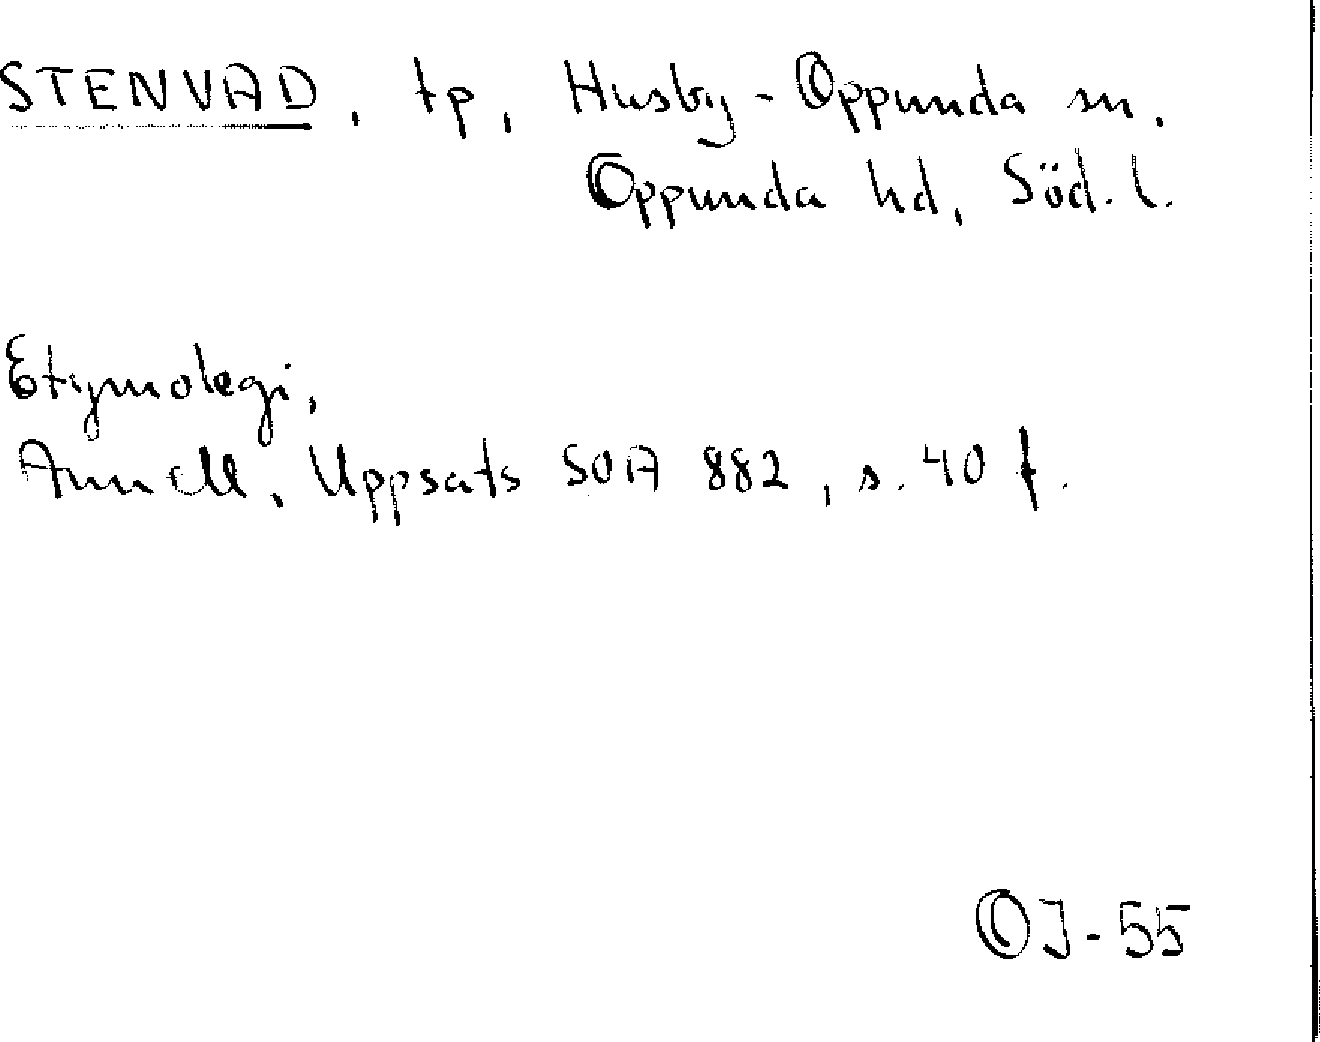 STENVAD, tp, Husby-Oppunda sn.
Oppunda hd, Söd. l.
Etymologi,
Annell, Uppsats SOA 882, s. 40 f.
OJ-55